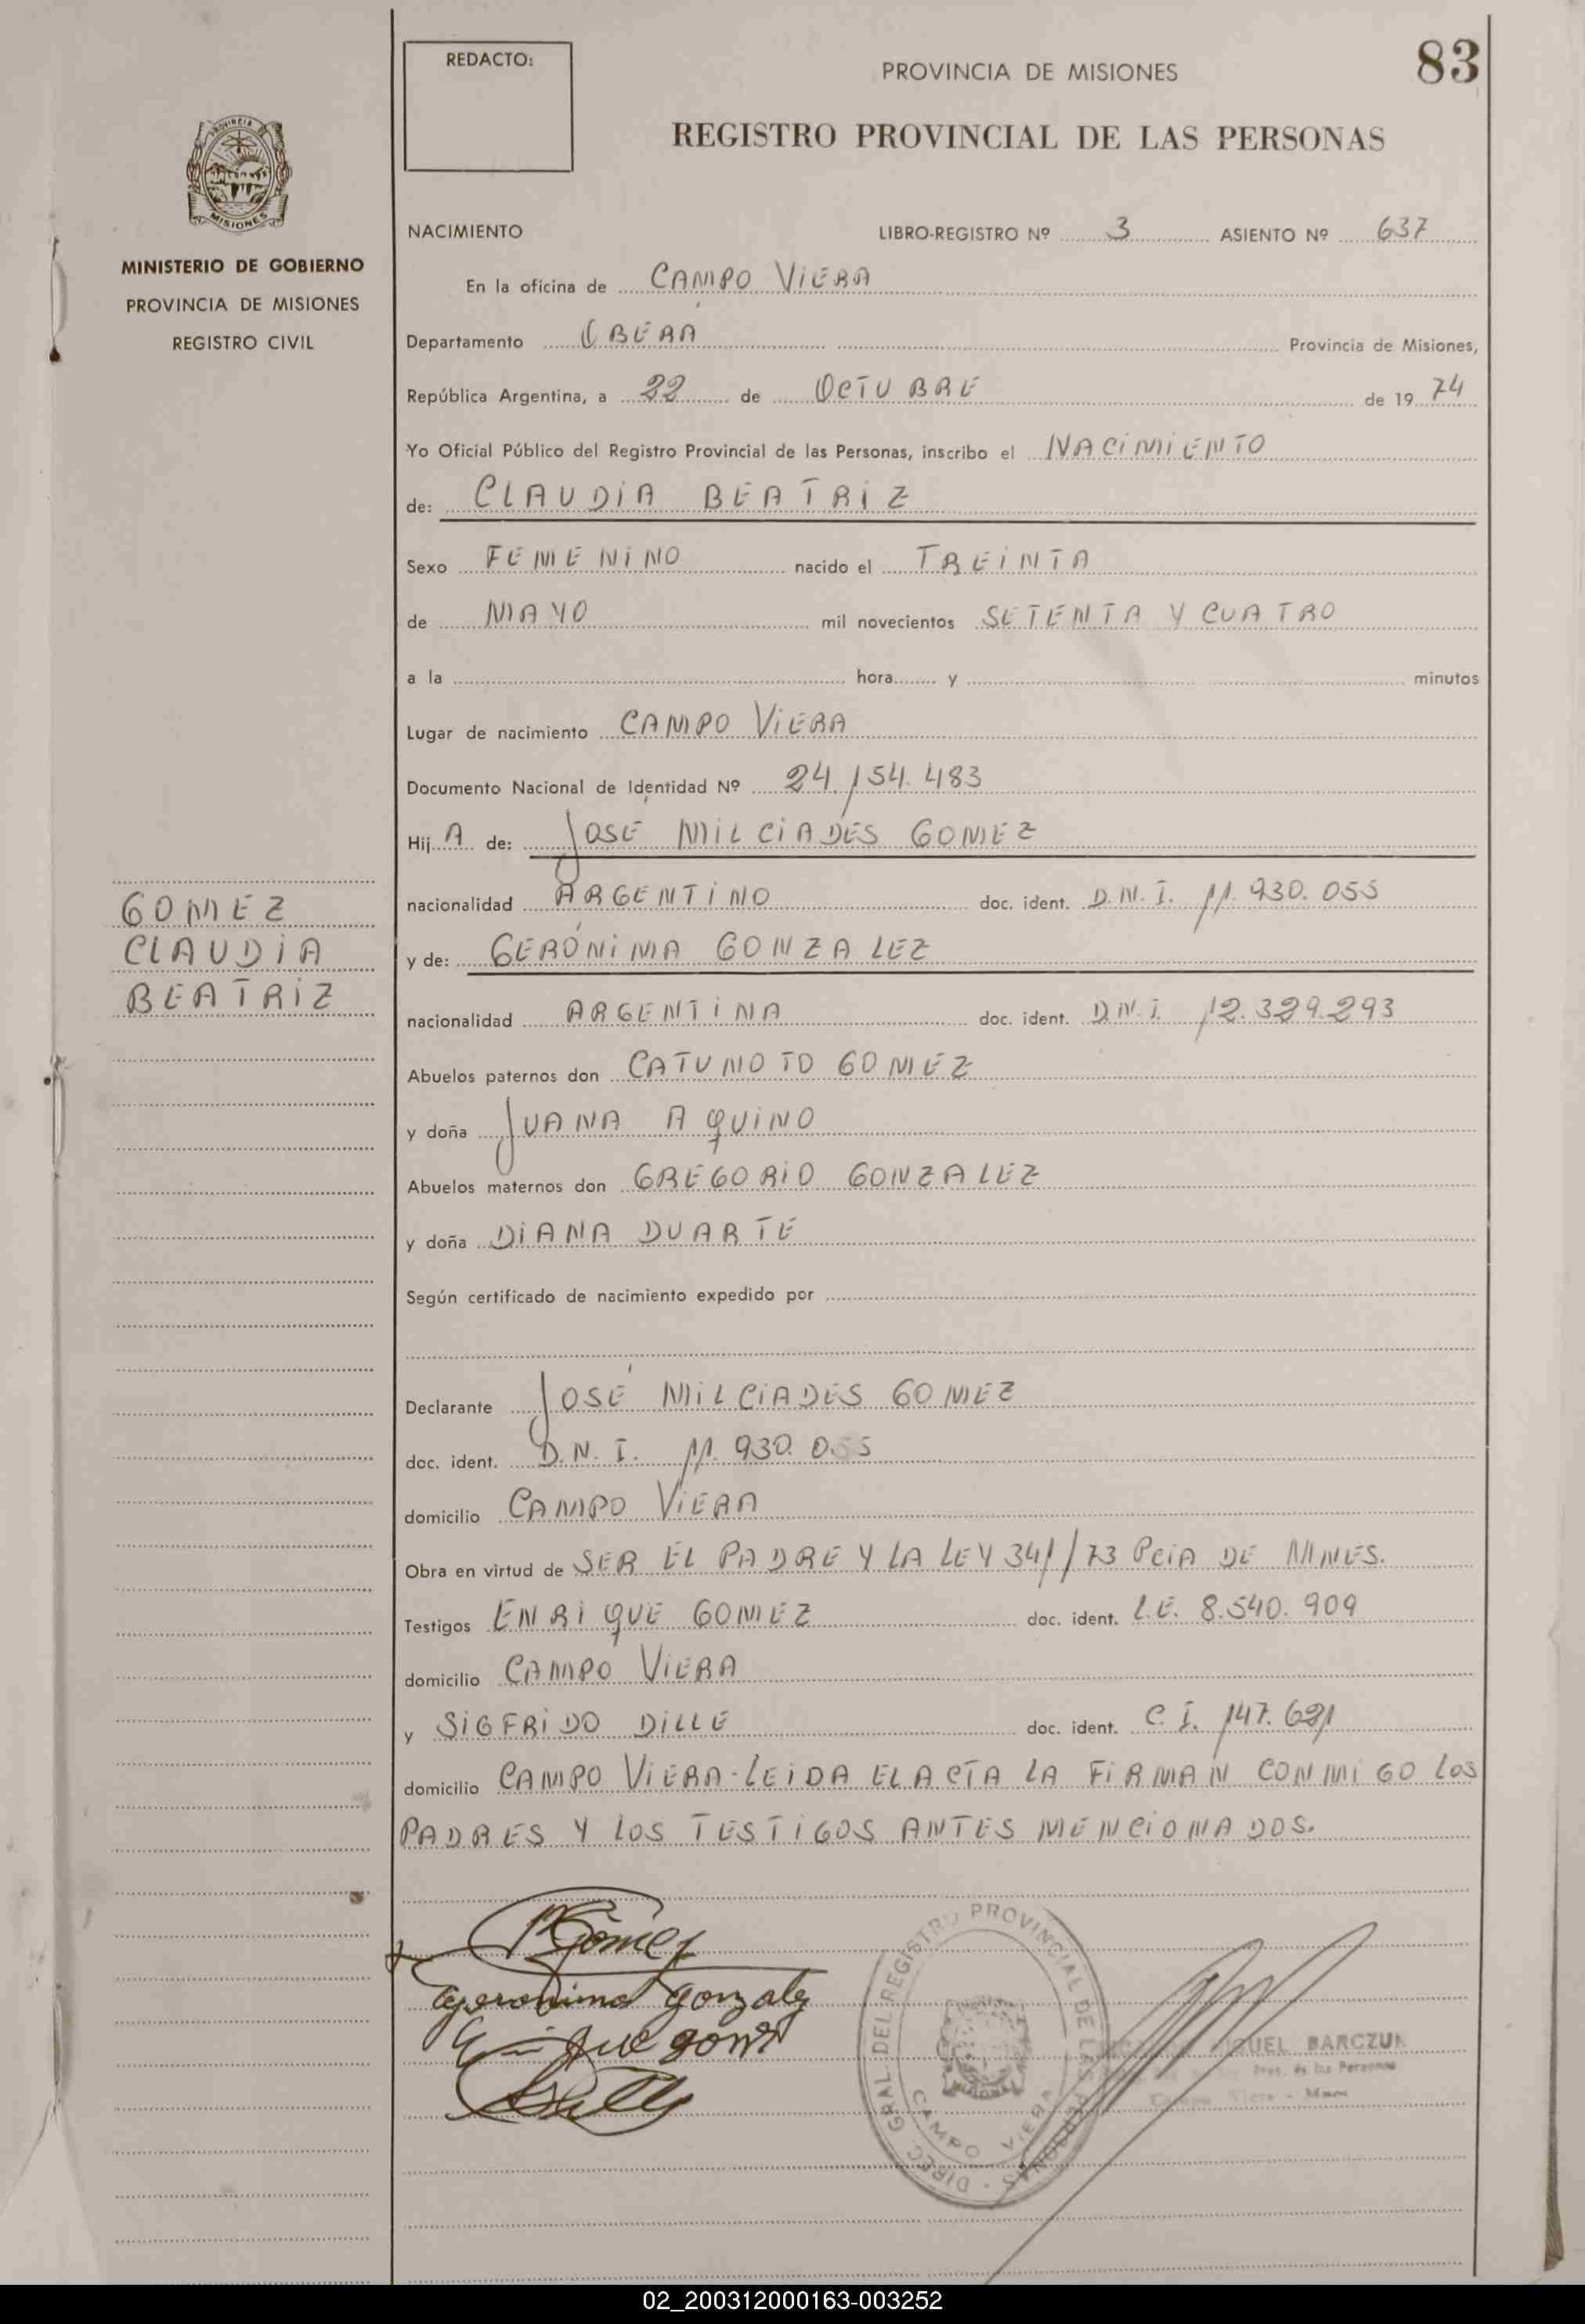 REDACTO:
PROVINCIA DE MISIONES
83
REGISTRO PROVINCIAL DE LAS PERSONAS
PROVINCIA DE
MISIONES
MINISTERIO DE GOBIERNO
PROVINCIA DE MISIONES
REGISTRO CIVIL
NACIMIENTO LIBRO-REGISTRO Nº 3 ASIENTO Nº 637
En la oficina de CAMPO VIERA
Departamento OBERA Provincia de Misiones,
República Argentina, a 22 de OCTUBRE de 19 74
Yo Oficial Público del Registro Provincial de las Personas, inscribo el NACIMIENTO
de: CLAUDIA BEATRIZ
Sexo FEMENINO nacido el TREINTA
de MAYO mil novecientos SETENTA Y CUATRO
a la hora y minutos
Lugar de nacimiento CAMPO VIERA
Documento Nacional de Identidad Nº 24.154.483
Hij A de: JOSE MILCIADES GOMEZ
nacionalidad ARGENTINO doc. ident. D.N.I. 11.930.055
y de: GERÓNIMA GONZALEZ
nacionalidad ARGENTINA doc. ident. D.N.I. 12.329.293
Abuelos paternos don CATUNOTO GOMEZ
y doña JUANA AQUINO
Abuelos maternos don GREGORIO GONZALEZ
y doña DIANA DUARTE
Según certificado de nacimiento expedido por
Declarante JOSÉ MILCIADES GOMEZ
doc. ident. D.N.I. 11.930.055
domicilio CAMPO VIERA
Obra en virtud de SER EL PADRE Y LA LEY 341/73 PCIA DE MNES.
Testigos ENRIQUE GOMEZ doc. ident. L.E. 8.540.909
domicilio CAMPO VIERA
y SIGFRIDO DILLE doc. ident. C.I. 147.691
domicilio CAMPO VIERA-LEIDA EL ACTA LA FIRMAN CONMIGO LOS
PADRES Y LOS TESTIGOS ANTES MENCIONADOS.
GOMEZ
CLAUDIA
BEATRIZ
Gomez
Geronima Gonzalez
Enrique gomez
DIREC. GRAL DEL REGISTRO PROVINCIAL DE LAS PERSONAS
CAMPO VIERA
MIGUEL BARCZUK
Prov. de las Personas
Campo Viera - Mnes
02_200312000163-003252